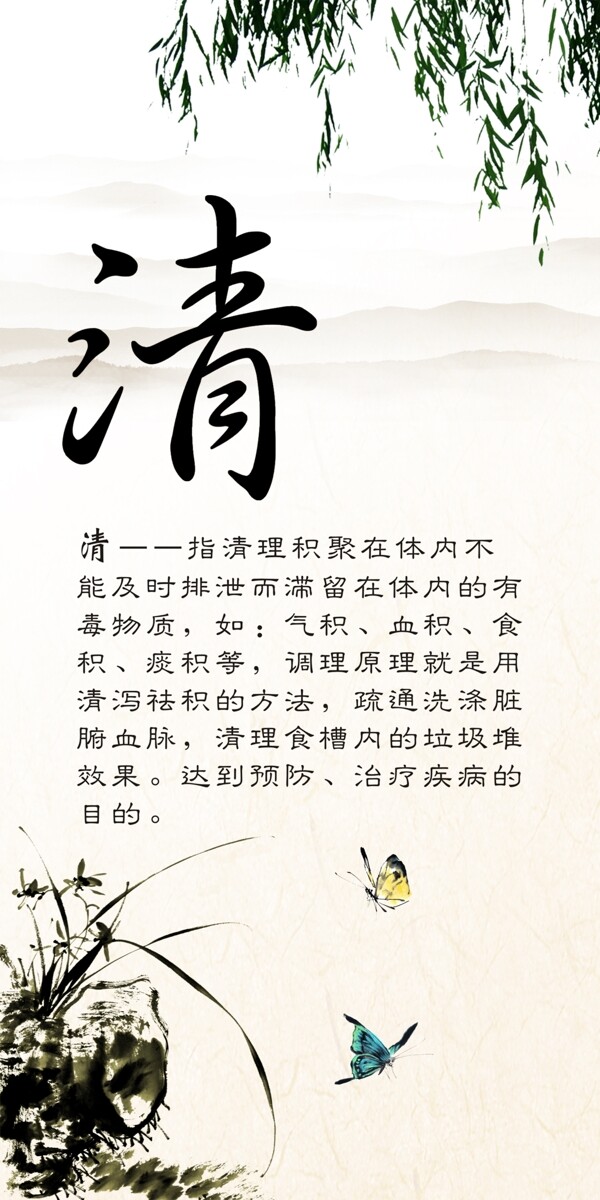 清
清——指清理积聚在体内不
能及时排泄而滞留在体内的有
毒物质，如：气积、血积、食
积、痰积等，调理原理就是用
清泻祛积的方法，疏通洗涤脏
腑血脉，清理食槽内的垃圾堆
效果。达到预防、治疗疾病的
目的。